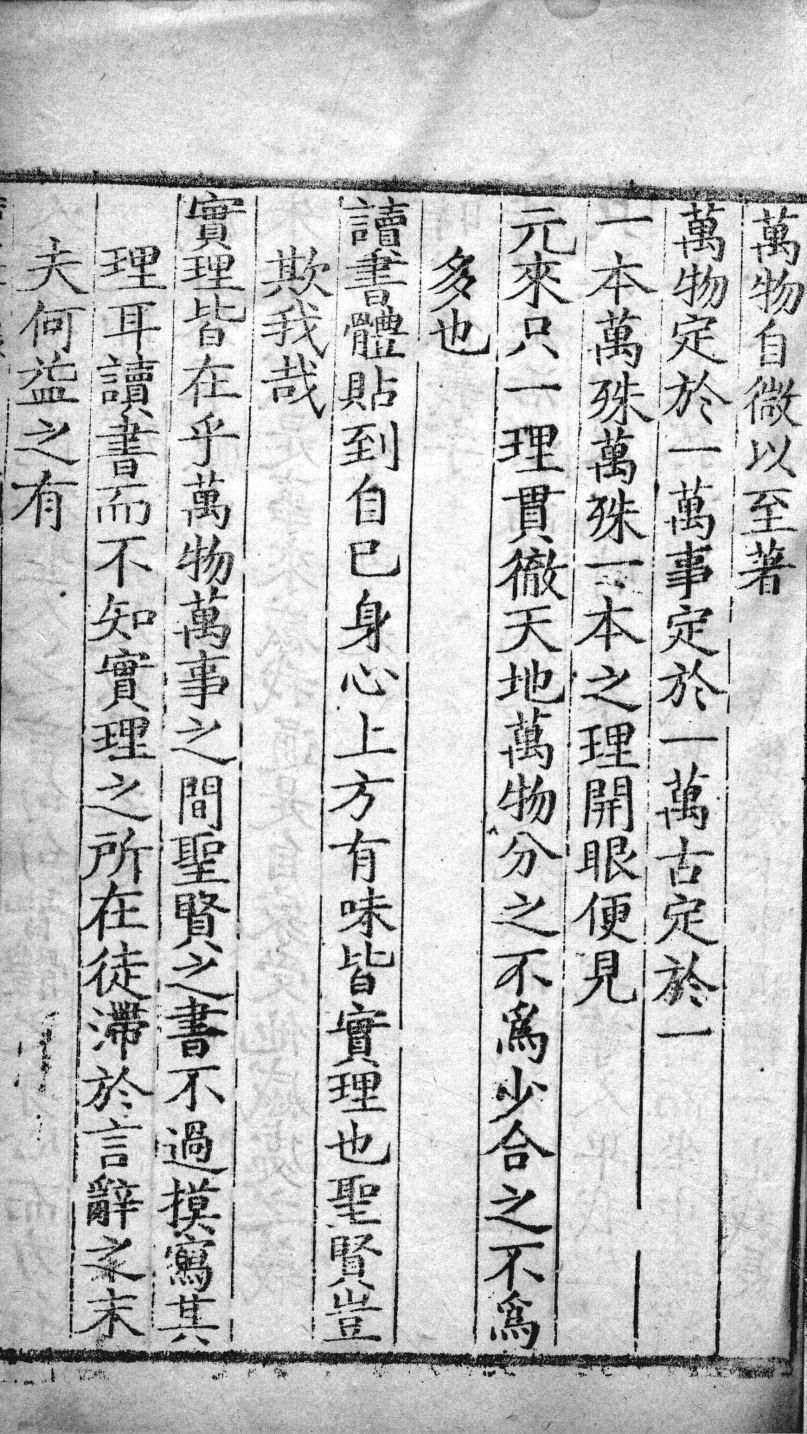 萬物自微以至著
萬物定於一萬事定於一萬古定於一
一本萬殊萬殊一本之理開眼便見
元來只一理貫徹天地萬物分之不爲少合之不爲
多也
讀書體貼到自已身心上方有味皆實理也聖賢豈
欺我哉
實理皆在乎萬物萬事之間聖賢之書不過摸寫其
理耳讀書而不知實理之所在徒滯於言辭之末
夫何益之有